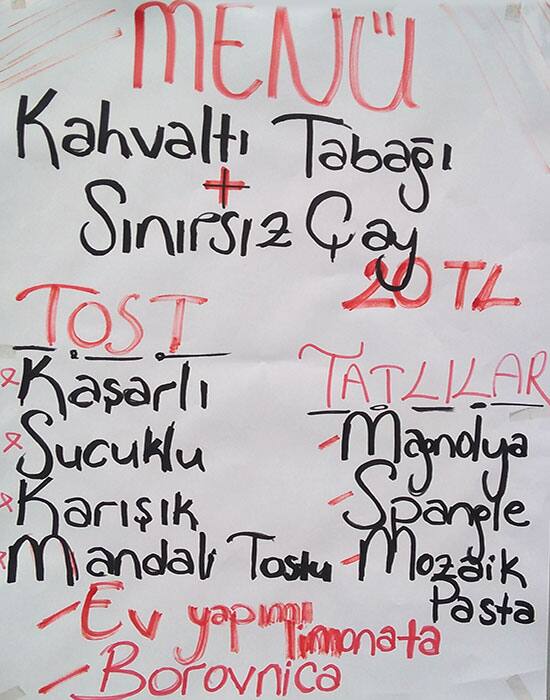 MENÜ
Kahvaltı Tabağı
+
Sınırsız Çay
20 TL
TOST
Kaşarlı
Sucuklu
Karışık
Mandalı Tostu
TATLILAR
Magnolya
Spangle
Mozaik
Pasta
Ev yapımı limonata
Borovnica